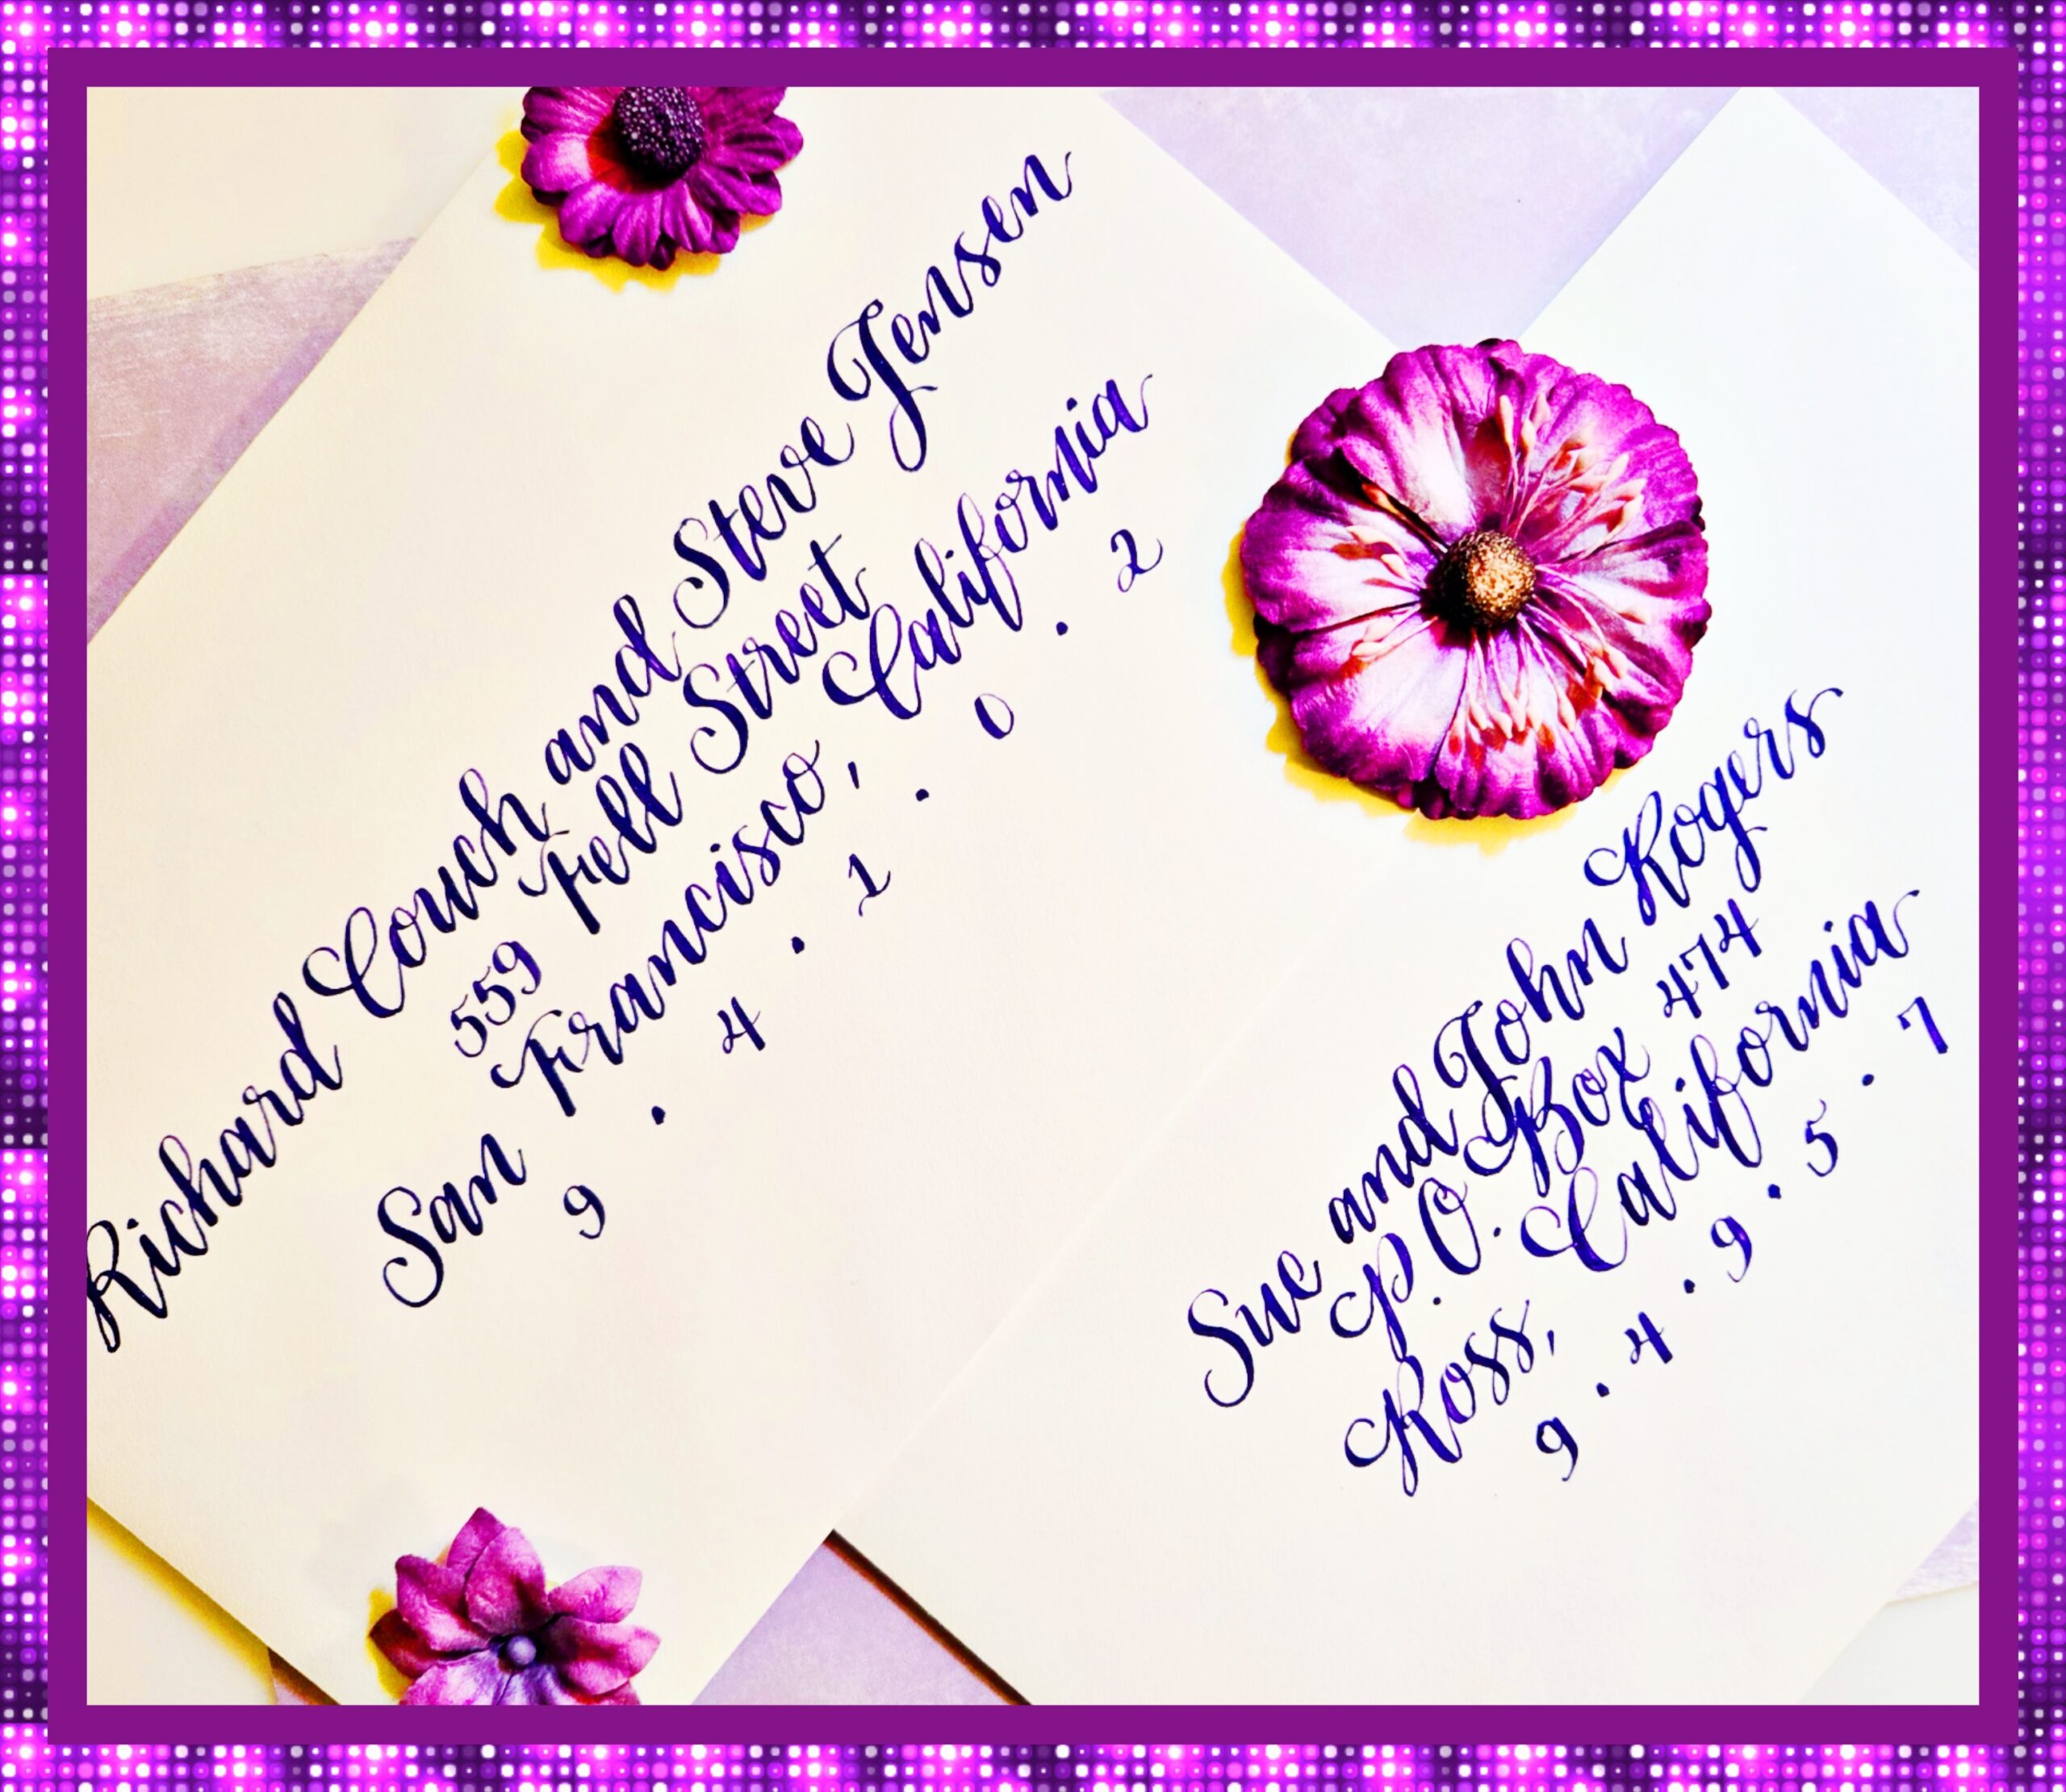 Richard Couch and Steve Jensen
559 Fell Street
San Francisco, California
9 . 4 . 1 . 0 . 2
Sue and John Rogers
P.O. Box 474
Ross, California
9 . 4 . 9 . 5 . 7